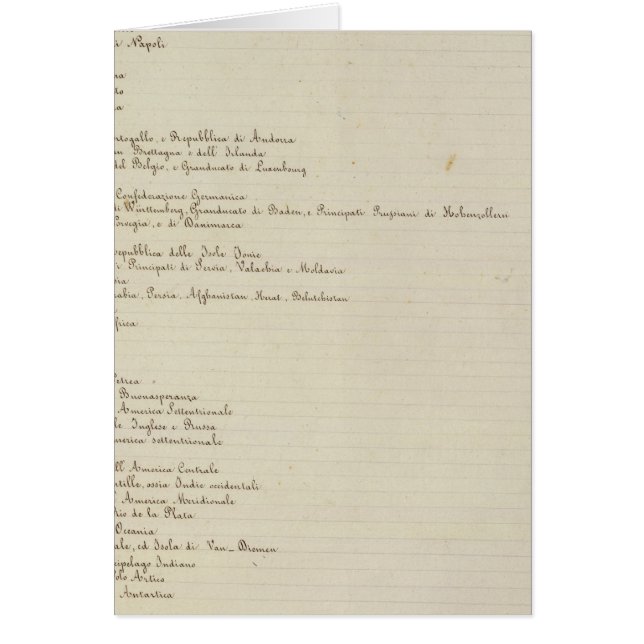 di Napoli
ra
to
ia
rtogallo, e Repubblica di Andorra
an Brettagna e dell' Irlanda
del Belgio, e Granducato di Luxembourg
Confederazione Germanica
di Württemberg, Granducato di Baden, e Principati Prussiani di Hohenzollern
orvegia, e di Danimarca
epubblica delle Isole Jonie
i Principati di Servia, Valachia e Moldavia
sia
rabia, Persia, Afghanistan, Herat, Belutchistan
frica
Petrea
Buonasperanza
America Settentrionale
le Inglese e Russa
merica settentrionale
ll' America Centrale
ntille, ossia Indie occidentali
l' America Meridionale
Rio de la Plata
Oceania
ale, ed Isola di Van-Diemen
cipelago Indiano
olo Artico
Antartica